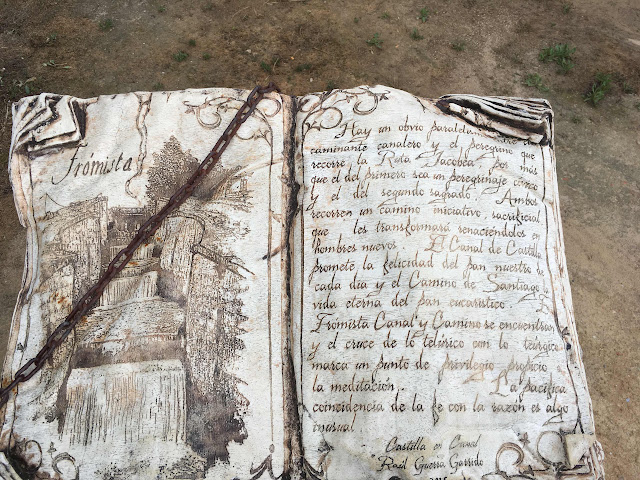 Fromista
Hay un obvio
caminante canalero y el peregrino que
recorre la Ruta Jacobea, por más
que el del primero sea un peregrinaje cívico
y el del segundo sagrado. Ambos
recorren un camino iniciativo, sacrificial
que les transformará renaciéndolos en
hombres nuevos. El Canal de Castilla
promete la felicidad del pan nuestro de
cada día y el Camino de Santiago
vida eterna del pan eucarístico. E
Fromista Canal y Camino se encuentran
y el cruce de lo telúrico con lo teúrgico
marca un punto de privilegio propicio a
la meditación. La pacífica
coincidencia de la fe con la razón es algo
inusual.
Castilla en Canal
Raúl Guerra Garrido